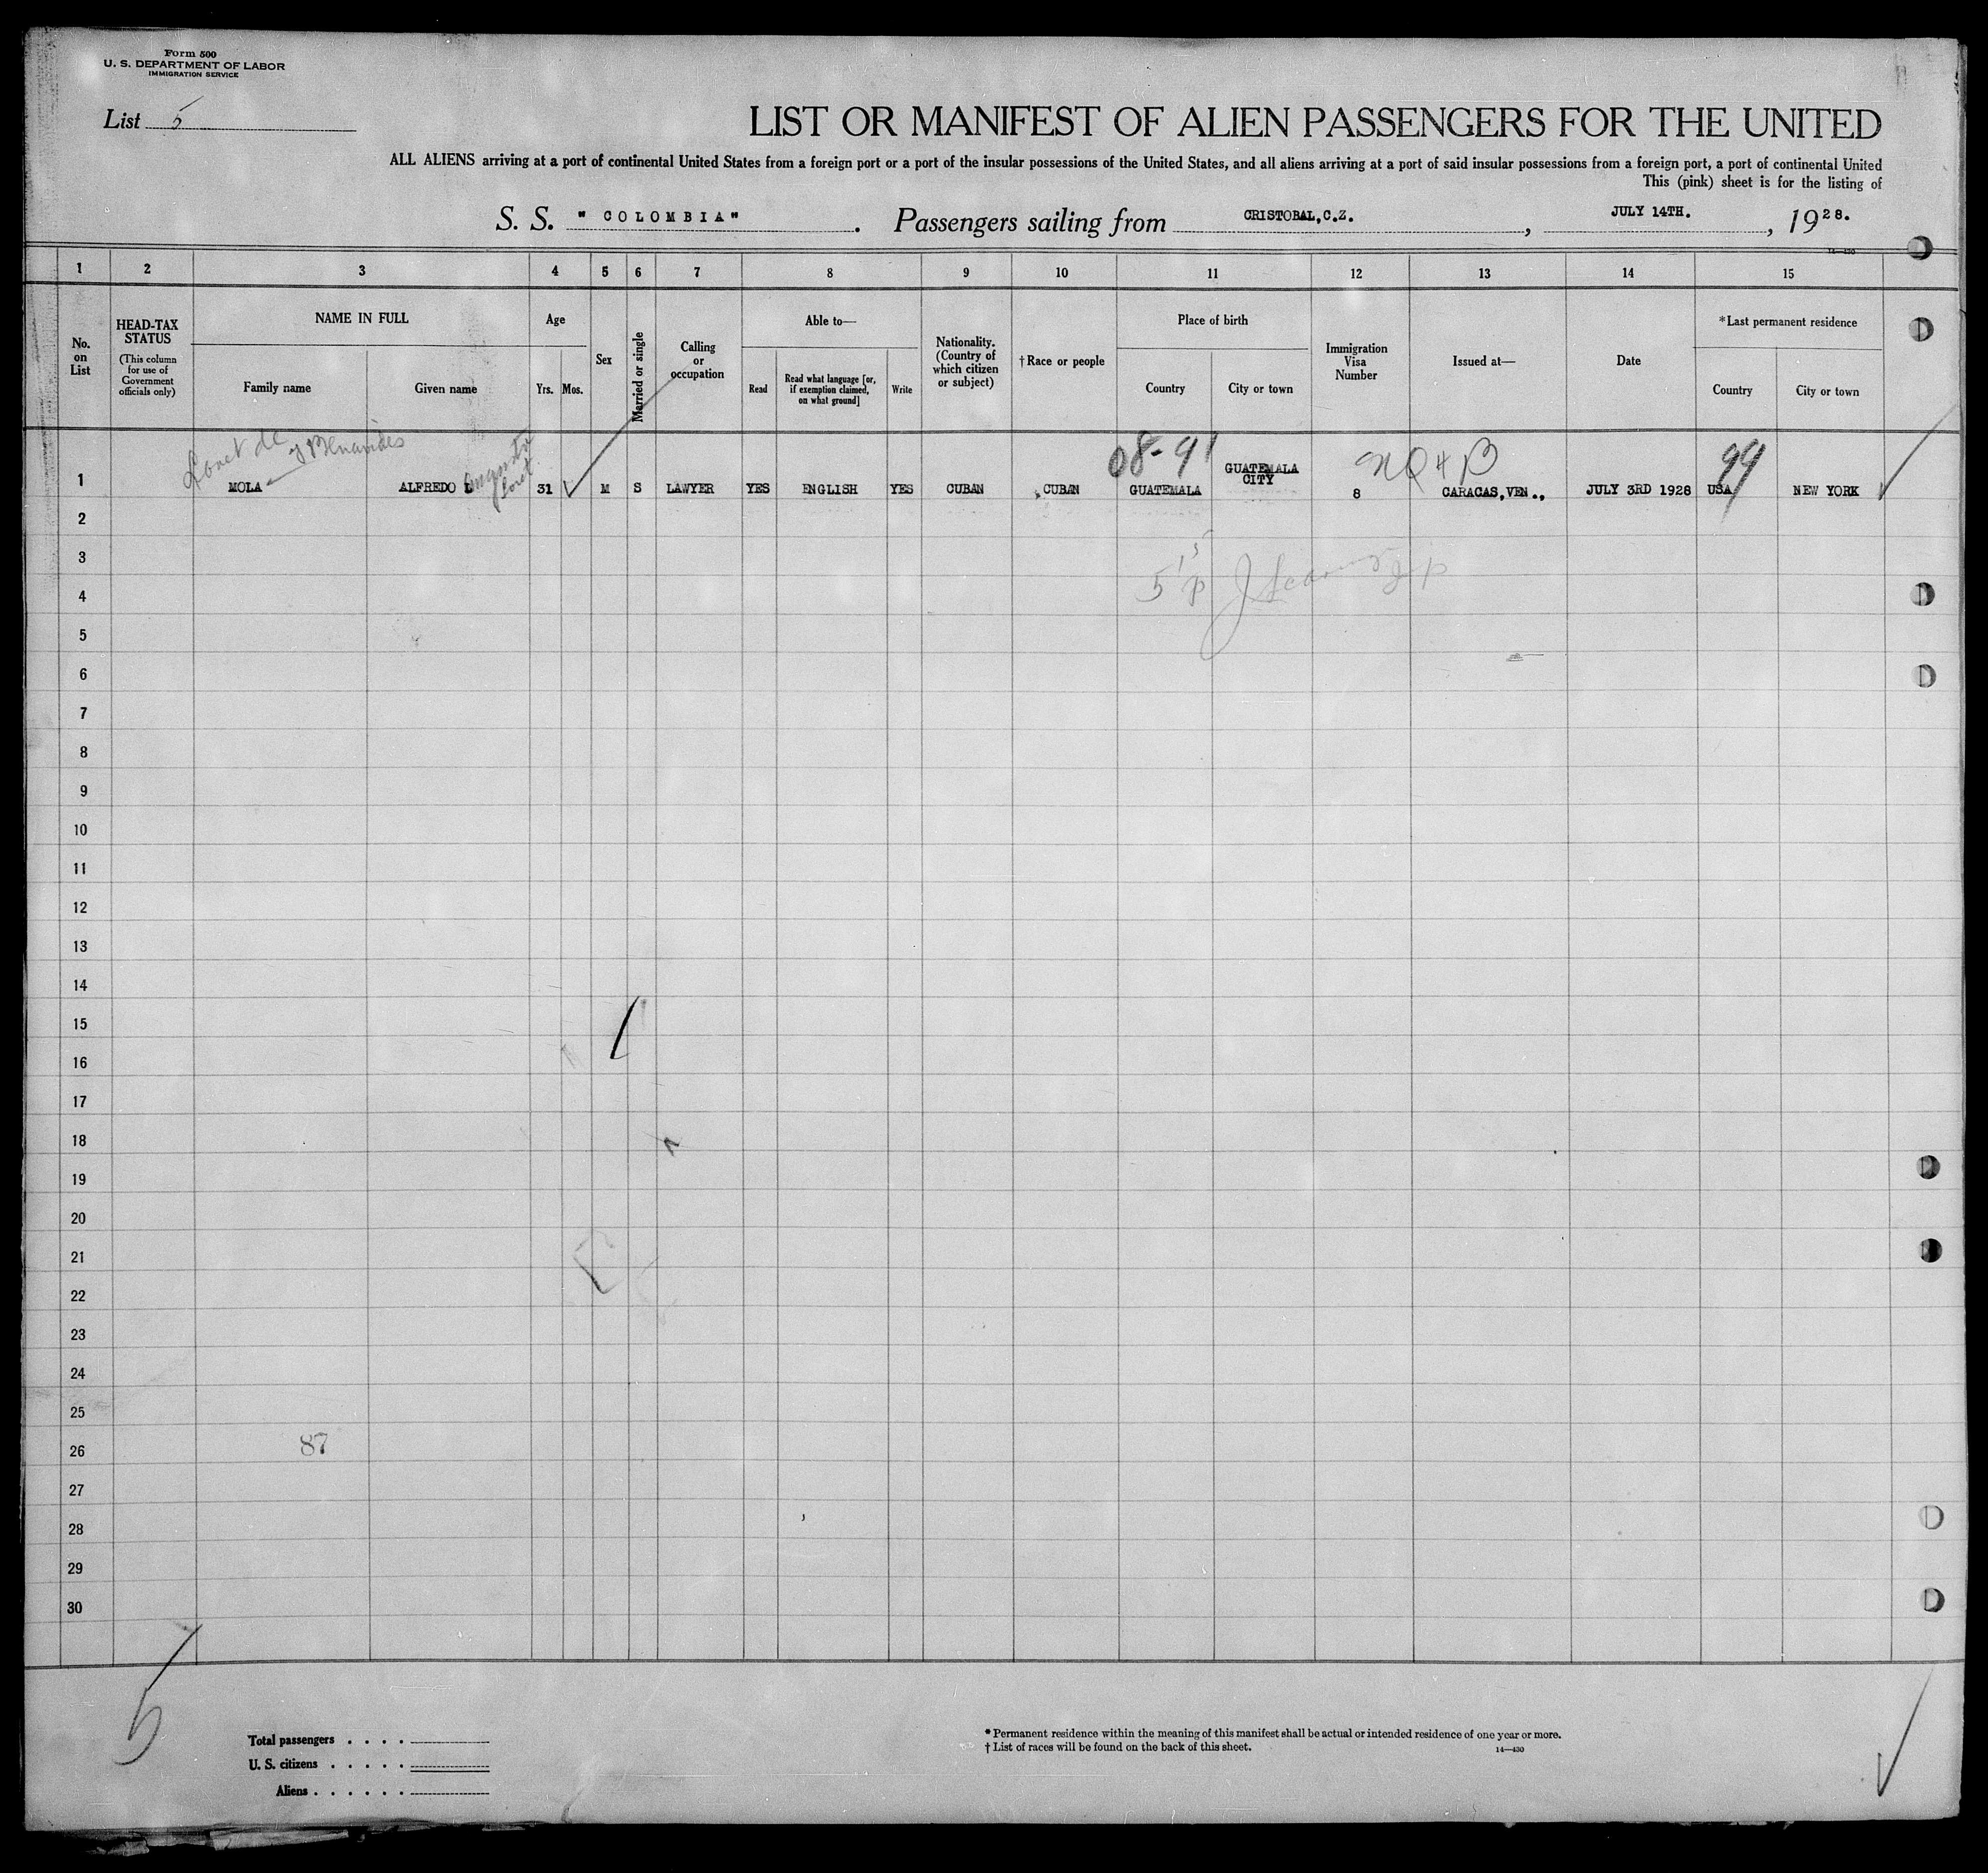 Form 500
U. S. DEPARTMENT OF LABOR
IMMIGRATION SERVICE
List 5
LIST OR MANIFEST OF ALIEN PASSENGERS FOR THE UNITED
ALL ALIENS arriving at a port of continental United States from a foreign port or a port of the insular possessions of the United States, and all aliens arriving at a port of said insular possessions from a foreign port, a port of continental United
This (pink) sheet is for the listing of
S. S. "COLOMBIA". Passengers sailing from CRISTOBAL,C.Z. , JULY 14TH. , 1928.
14—430
1 2 3 4 5 6 7 8 9 10 11 12 13 14 15
No. on List
HEAD-TAX STATUS
(This column for use of Government officials only)
NAME IN FULL
Family name Given name
Age
Yrs. Mos.
Sex
Married or single
Calling or occupation
Able to—
Read
Read what language [or, if exemption claimed, on what ground]
Write
Nationality. (Country of which citizen or subject)
†Race or people
Place of birth
Country City or town
Immigration Visa Number
Issued at—
Date
*Last permanent residence
Country City or town
Loret de y Benavides
08-91
99
1 MOLA ALFREDO L 31 M S LAWYER YES ENGLISH YES CUBAN CUBAN GUATEMALA GUATEMALA CITY 8 CARACAS,VEN., JULY 3RD 1928 USA NEW YORK
2
3
4
5
6
7
8
9
10
11
12
13
14
15
16
17
18
19
20
21
22
23
24
25
26 87
27
28
29
30
5
Total passengers . . . .
U. S. citizens . . . . .
Aliens . . . . . .
* Permanent residence within the meaning of this manifest shall be actual or intended residence of one year or more.
† List of races will be found on the back of this sheet.
14—430